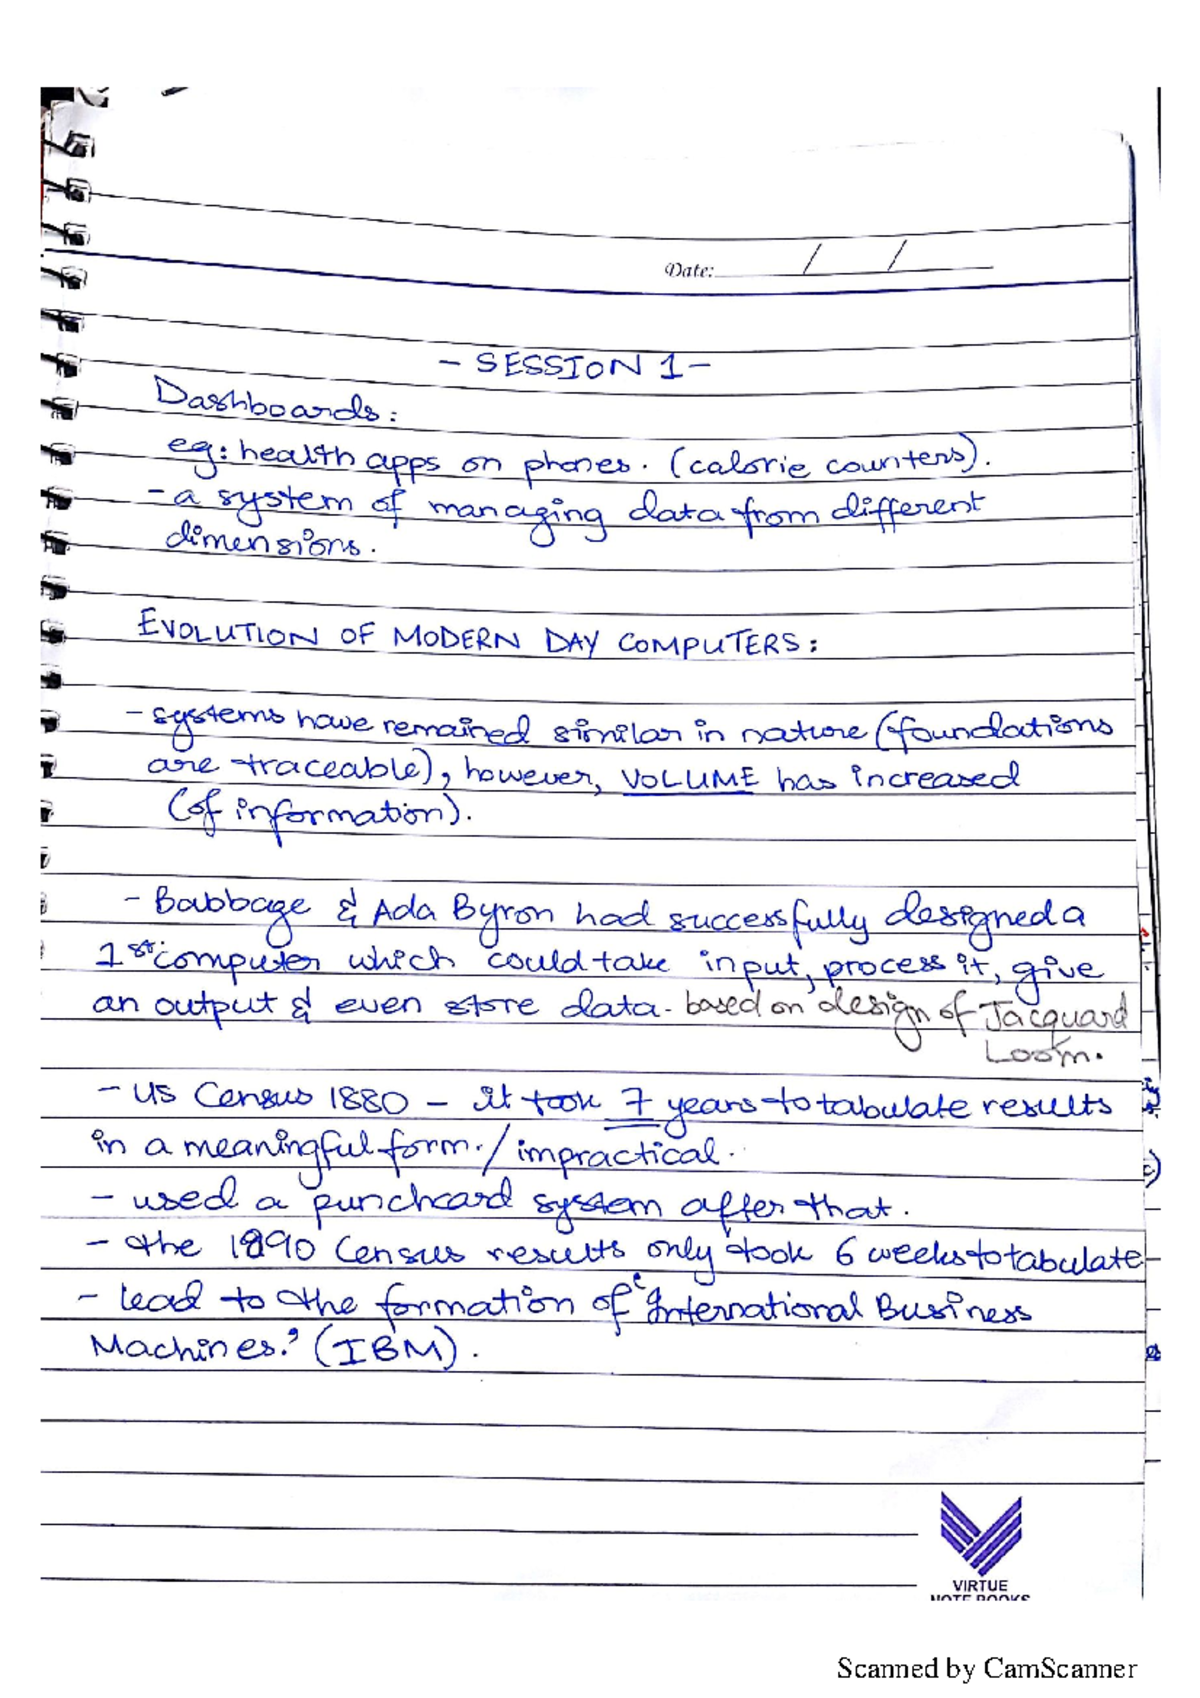 Date: / /
- SESSION 1 -
Dashboards:
eg: health apps on phones. (calorie counters).
- a system of managing data from different
dimensions.
EVOLUTION OF MODERN DAY COMPUTERS:
- systems have remained similar in nature (foundations
are traceable), however, VOLUME has increased
(of information).
- Babbage & Ada Byron had successfully designed a
1st computer which could take input, process it, give
an output & even store data. based on design of Jacquard
Loom.
- US Census 1880 - it took 7 years to tabulate results
in a meaningful form. / impractical.
- used a punchcard system after that.
- the 1890 Census results only took 6 weeks to tabulate
- lead to the formation of 'International Business
Machines.' (IBM).
VIRTUE
NOTE BOOKS
Scanned by CamScanner